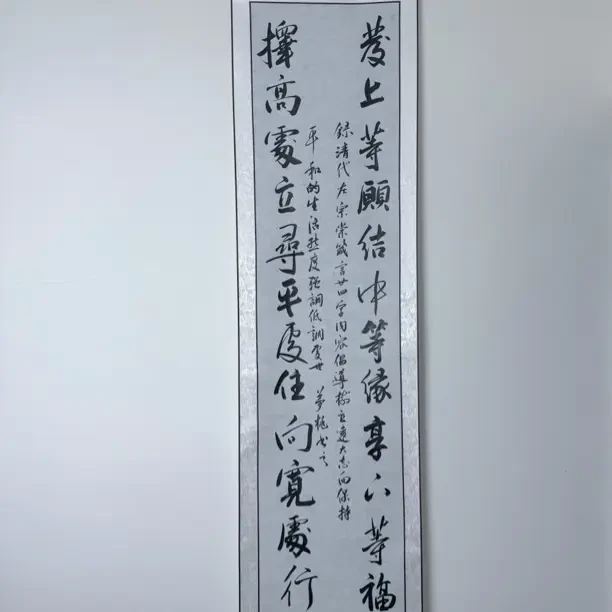 發上等願结中等缘享下等福
擇高處立尋平處住向寬處行
録清代左宗棠箴言廿四字内容倡導树立遠大志向保持
平和的生活態度强調低調處世 夢龍书之